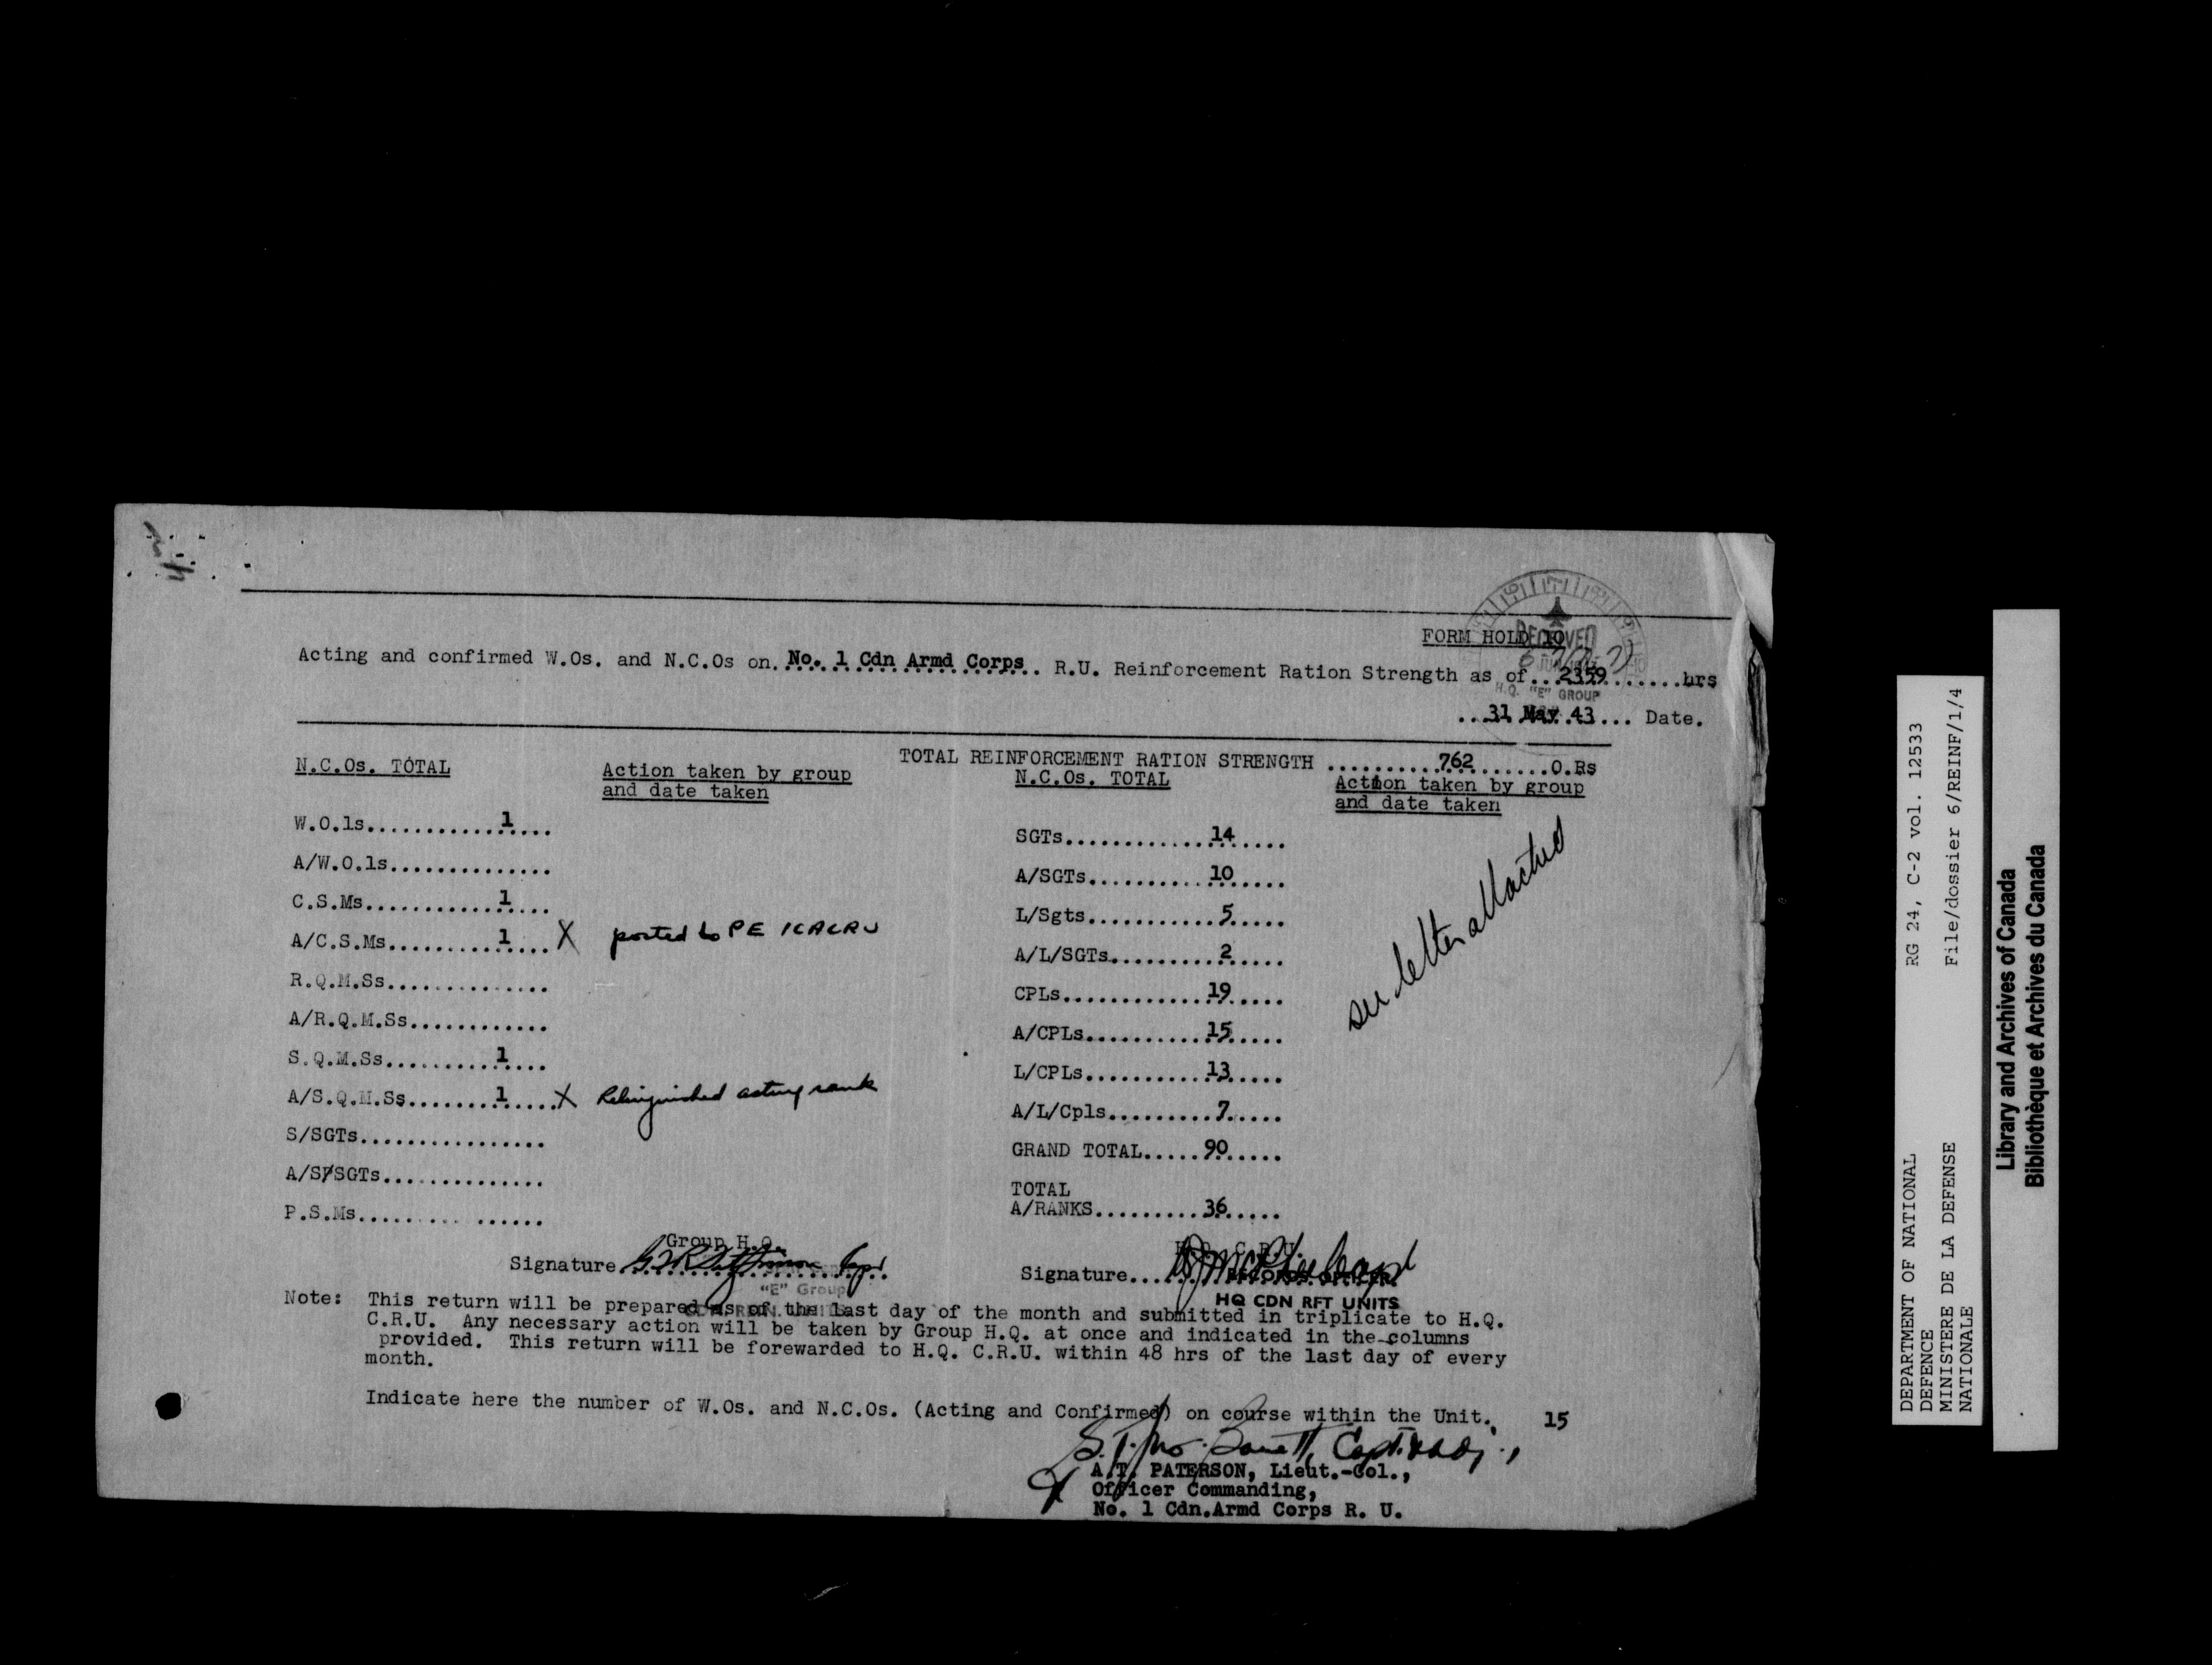 FORM HOLD 10
RECEIVED
H.Q. "E" GROUP
Acting and confirmed W.Os. and N.C.Os on. No. 1 Cdn Armd Corps.. R.U. Reinforcement Ration Strength as of...2359.......hrs
...31 May 43.... Date.
TOTAL REINFORCEMENT RATION STRENGTH ..........762..........O.Rs
N.C.Os. TOTAL
Action taken by group
and date taken
W.O.1s................1....
A/W.O.1s..............
C.S.Ms................1....
A/C.S.Ms..............1.... X posted to PE 1CACRU
R.Q.M.Ss..............
A/R.Q.M.Ss............
S.Q.M.Ss..............1....
A/S.Q.M.Ss............1.....X Relinquished acting rank
S/SGTs................
A/S/SGTs..............
P.S.Ms................
N.C.Os. TOTAL
Action taken by group
and date taken
SGTs..............14......
A/SGTs............10......
L/Sgts............5.....
A/L/SGTs..........2......
CPLs..............19......
A/CPLs............15......
L/CPLs............13......
A/L/Cpls..........7......
GRAND TOTAL.....90......
TOTAL
A/RANKS..........36......
see letter attached
Group H.Q.
Signature
"E" Group
Signature....
RECORDS OFFICER
HQ CDN RFT UNITS
Note: This return will be prepared as of the last day of the month and submitted in triplicate to H.Q.
C.R.U. Any necessary action will be taken by Group H.Q. at once and indicated in the columns
provided. This return will be forewarded to H.Q. C.R.U. within 48 hrs of the last day of every
month.
Indicate here the number of W.Os. and N.C.Os. (Acting and Confirmed) on course within the Unit. 15
Capt. & Adj.,
A.T. PATERSON, Lieut.-Col.,
Officer Commanding,
No. 1 Cdn.Armd Corps R. U.
DEPARTMENT OF NATIONAL
DEFENCE
MINISTERE DE LA DEFENSE
NATIONALE
RG 24, C-2 vol. 12533
File/dossier 6/REINF/1/4
Library and Archives of Canada
Bibliothèque et Archives du Canada